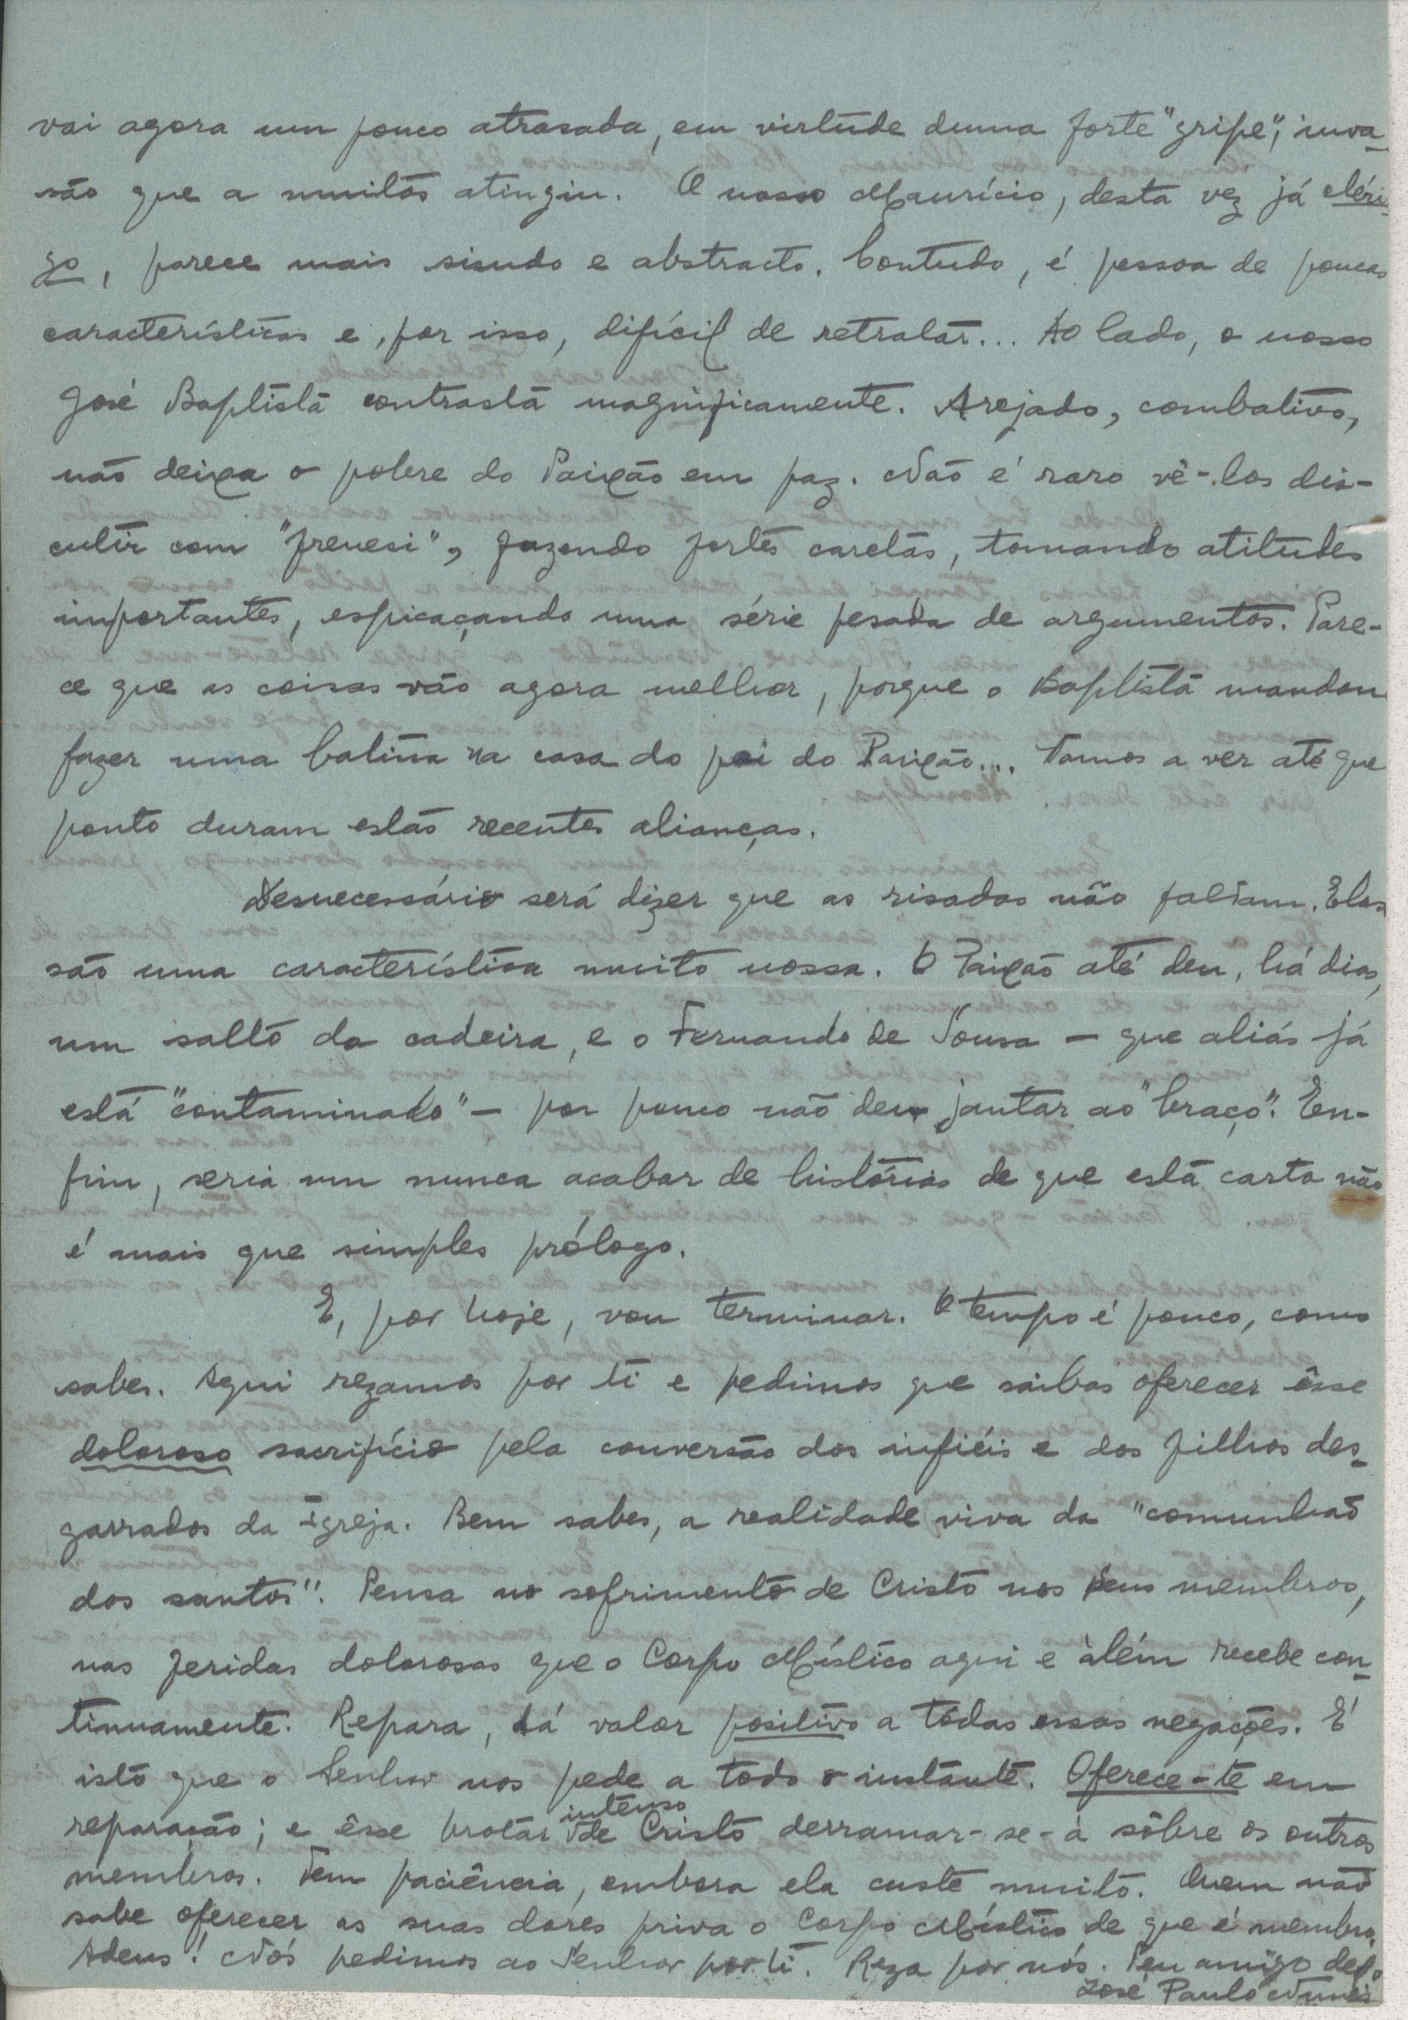 vai agora um pouco atrasada, em virtude duma forte "gripe", inva-
são que a muitos atingiu. O nosso Maurício, desta vez já cléri-
go, parece mais sisudo e abstracto. Contudo, é pessoa de poucas
características e, por isso, difícil de retratar... Ao lado, o nosso
José Baptista contrasta magnificamente. Arejado, combativo,
não deixa o pobre do Paixão em paz. Não é raro vê-los dis-
cutir com "frenesi", fazendo fortes caretas, tomando atitudes
importantes, espicaçando uma série pesada de argumentos. Pare-
ce que as coisas vão agora melhor, porque o Baptista mandou
fazer uma batina na casa do pai do Paixão... Vamos a ver até que
ponto duram estas recentes alianças.
Desnecessário será dizer que as risadas não faltam. Elas
são uma característica muito nossa. O Paixão até deu, há dias,
um salto da cadeira, e o Fernando de Sousa — que aliás já
está "contaminado" — por pouco não deu jantar ao "braço". En-
fim, seria um nunca acabar de histórias de que esta carta não
é mais que simples prólogo.
E, por hoje, vou terminar. O tempo é pouco, como
sabes. Aqui rezamos por ti e pedimos que saibas oferecer êsse
doloroso sacrifício pela conversão dos infiéis e dos filhos des-
garrados da Igreja. Bem sabes, a realidade viva da "comunhão
dos santos". Pensa no sofrimento de Cristo nos seus membros,
nas feridas dolorosas que o Corpo Místico aqui e àlém recebe con-
tinuamente. Repara, dá valor positivo a tôdas essas negações. É
isto que o Senhor nos pede a todo o instante. Oferece-te em
reparação; e êsse brotar intenso de Cristo derramar-se-á sôbre os outros
membros. Tem paciência, embora ela custe muito. Quem não
sabe oferecer as suas dores priva o Corpo Místico de que é membro.
Adeus! Nós pedimos ao Senhor por ti. Reza por nós. Teu amigo ded.º
José Paulo Nunes